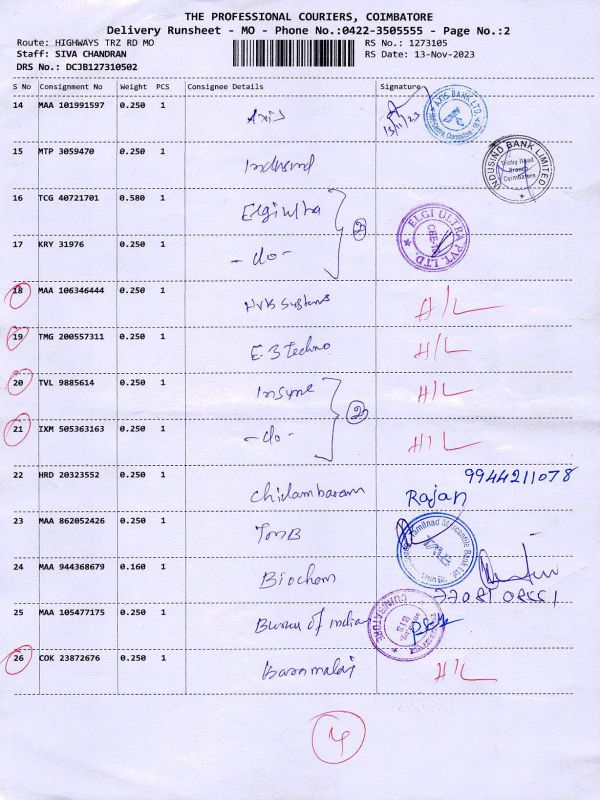 THE PROFESSIONAL COURIERS, COIMBATORE
Delivery Runsheet - MO - Phone No.:0422-3505555 - Page No.:2
Route: HIGHWAYS TRZ RD MO RS No.: 1273105
Staff: SIVA CHANDRAN RS Date: 13-Nov-2023
DRS No.: DCJB127310502
S No Consignment No Weight PCS Consignee Details Signature
14 MAA 101991597 0.250 1 Axis 13/11/23 AXIS BANK LTD.
15 MTP 3059470 0.250 1 Indusind INDUSIND BANK LIMITED Trichy Road Branch Coimbatore
16 TCG 40721701 0.580 1 Elgi ultra 2 ELGI ULTRA PVT. LTD.
17 KRY 31976 0.250 1 -do-
18 MAA 106346444 0.250 1 HVR Systems H/L
19 TMG 200557311 0.250 1 E.3 techno H/L
20 TVL 9885614 0.250 1 Insyne 2 H/L
21 IXM 505363163 0.250 1 -do- H/L
22 HRD 20323552 0.250 1 Chidambaram Rajan 9944211078
23 MAA 862052426 0.250 1 TMB Tamilnad Mercantile Bank Ltd. TMB
24 MAA 944368679 0.160 1 Biochem
25 MAA 105477175 0.250 1 Bureau of india B.I.S. COIMBATORE
26 COK 23872676 0.250 1 H/L
4